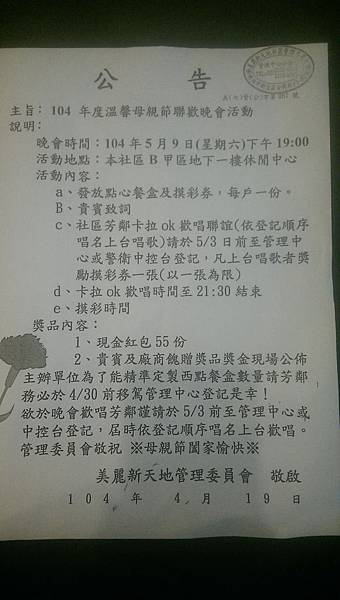 公告
主旨：104 年度溫馨母親節聯歡晚會活動
說明：
晚會時間：104年5月9日(星期六)下午19:00
活動地點：本社區B甲區地下一樓休閒中心
活動內容：
a、發放點心餐盒及摸彩券，每戶一份。
B、貴賓致詞
c、社區芳鄰卡拉ok歡唱聯誼(依登記順序
唱名上台唱歌)請於5/3日前至管理中
心或警衛中控台登記，凡上台唱歌者獎
勵摸彩券一張(以一張為限)
d、卡拉ok歡唱時間至21:30結束
e、摸彩時間
獎品內容：
1、現金紅包55份
2、貴賓及廠商餽贈獎品獎金現場公佈
主辦單位為了能精準定製西點餐盒數量請芳鄰
務必於4/30前移駕管理中心登記是幸！
欲於晚會歡唱芳鄰謹請於5/3前至管理中心或
中控台登記，屆時依登記順序唱名上台歡唱。
管理委員會敬祝 ※母親節闔家愉快※
美麗新天地管理委員會 敬啟
104年4月19日